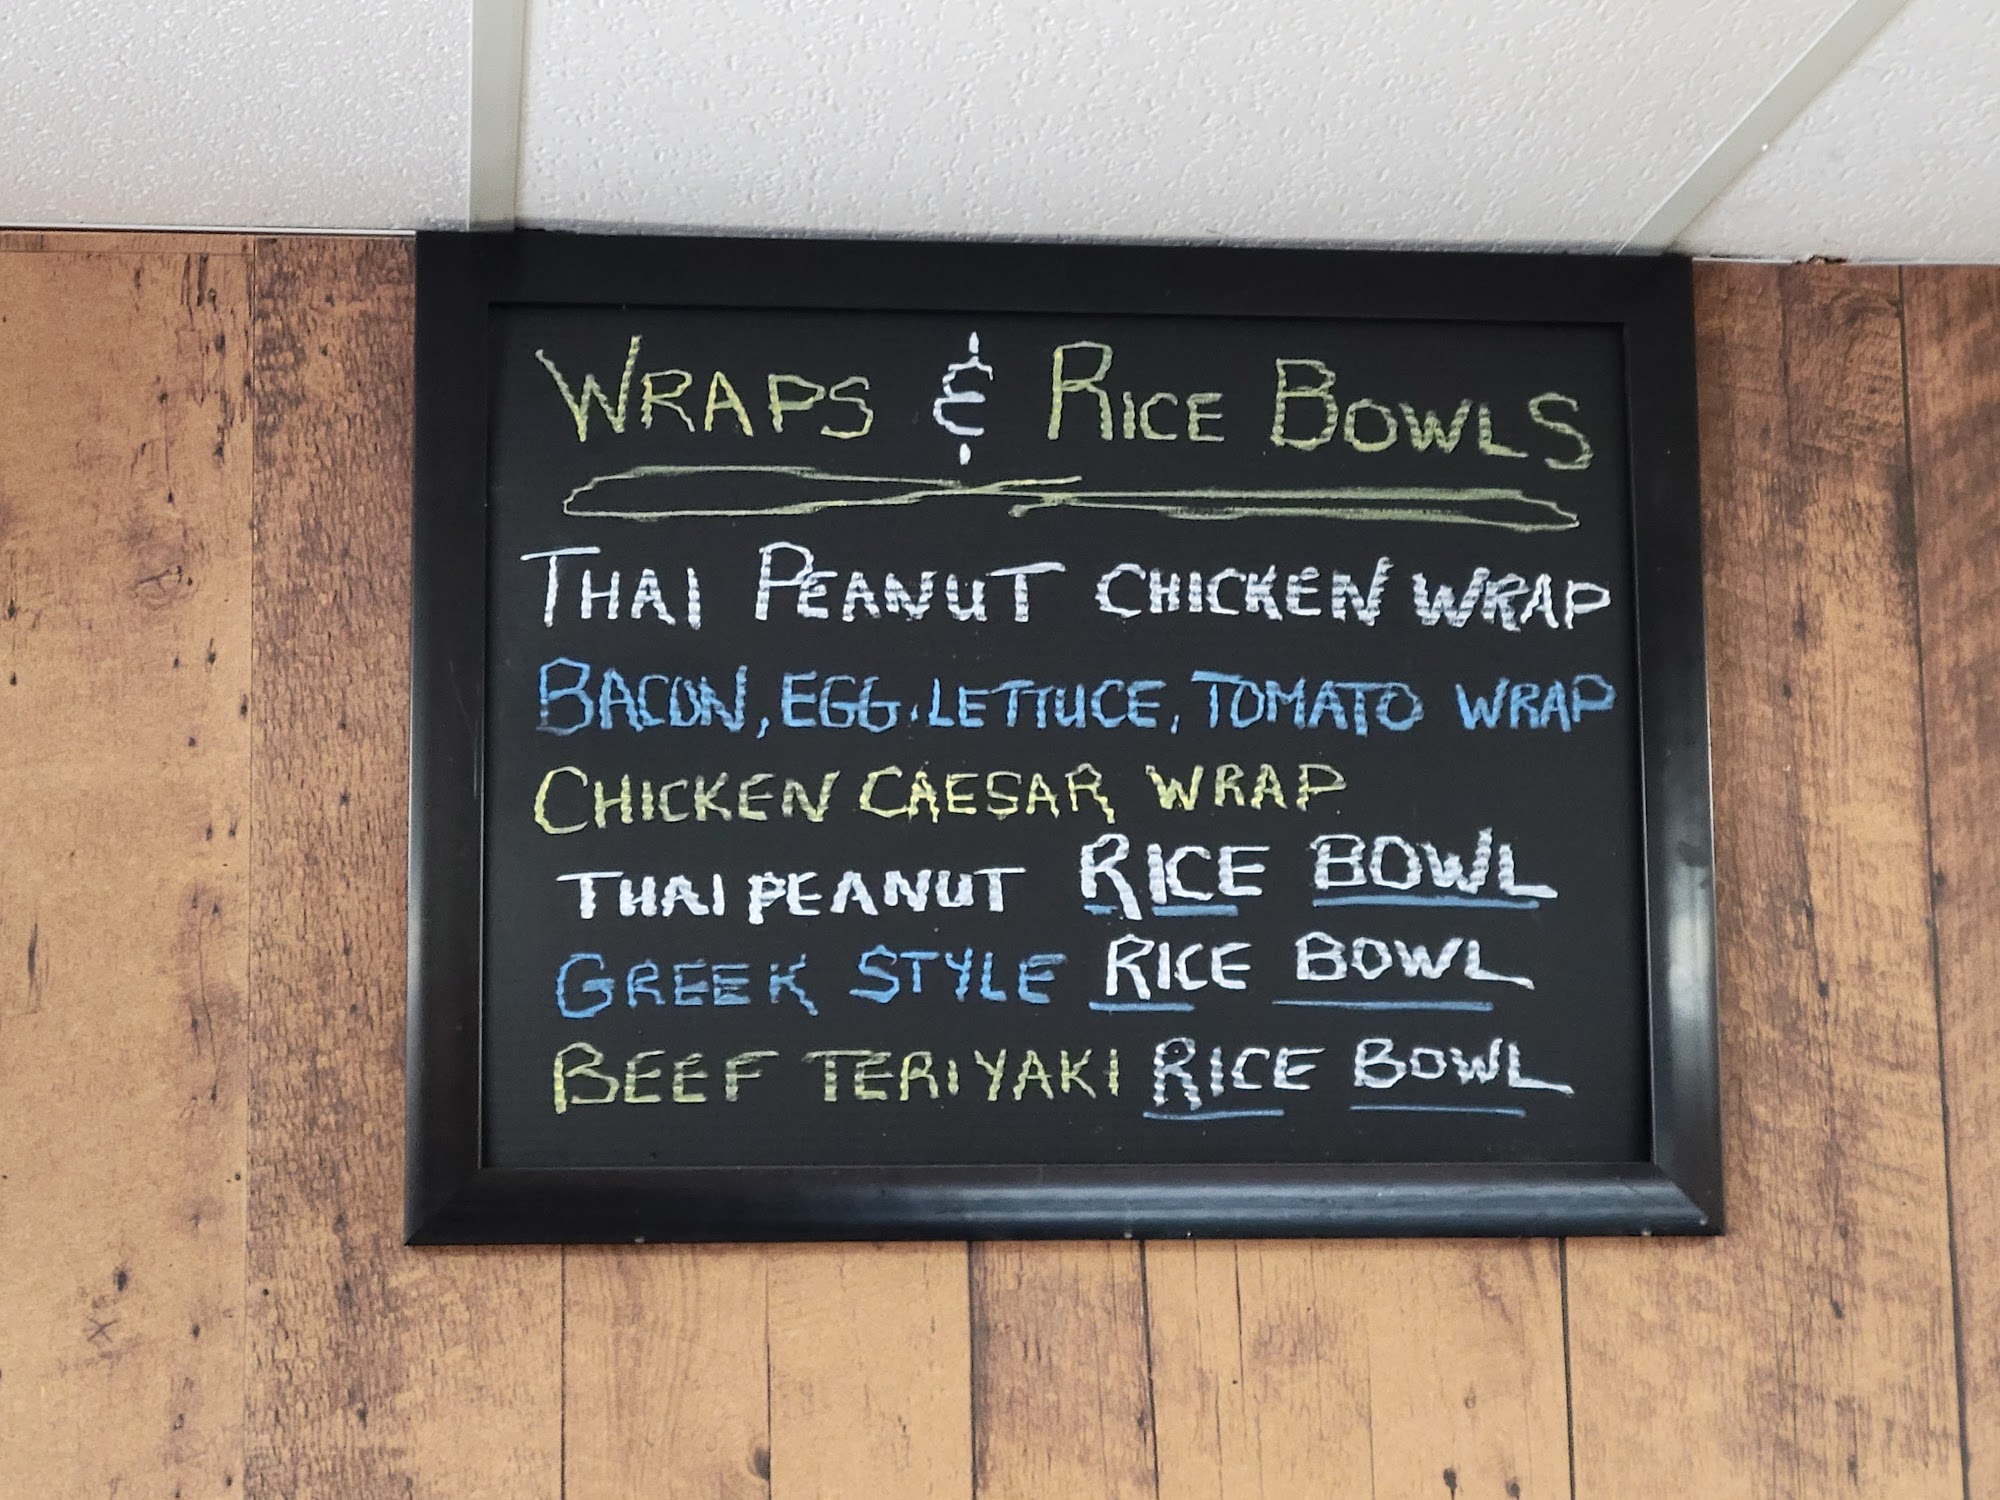 WRAPS & RICE BOWLS
THAI PEANUT CHICKEN WRAP
BACON, EGG, LETTUCE, TOMATO WRAP
CHICKEN CAESAR WRAP
THAI PEANUT RICE BOWL
GREEK STYLE RICE BOWL
BEEF TERIYAKI RICE BOWL